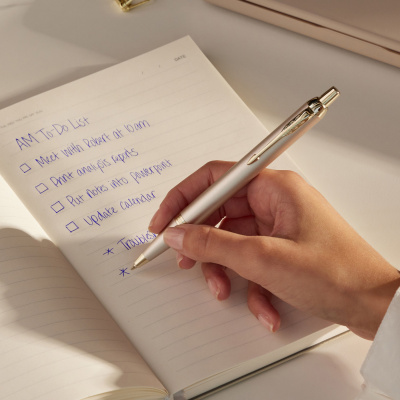 AM To-Do List
☐ Meet with Robert at 10am
☐ Print analysis reports
☐ Put notes into powerpoint
☐ Update calendar
*
*